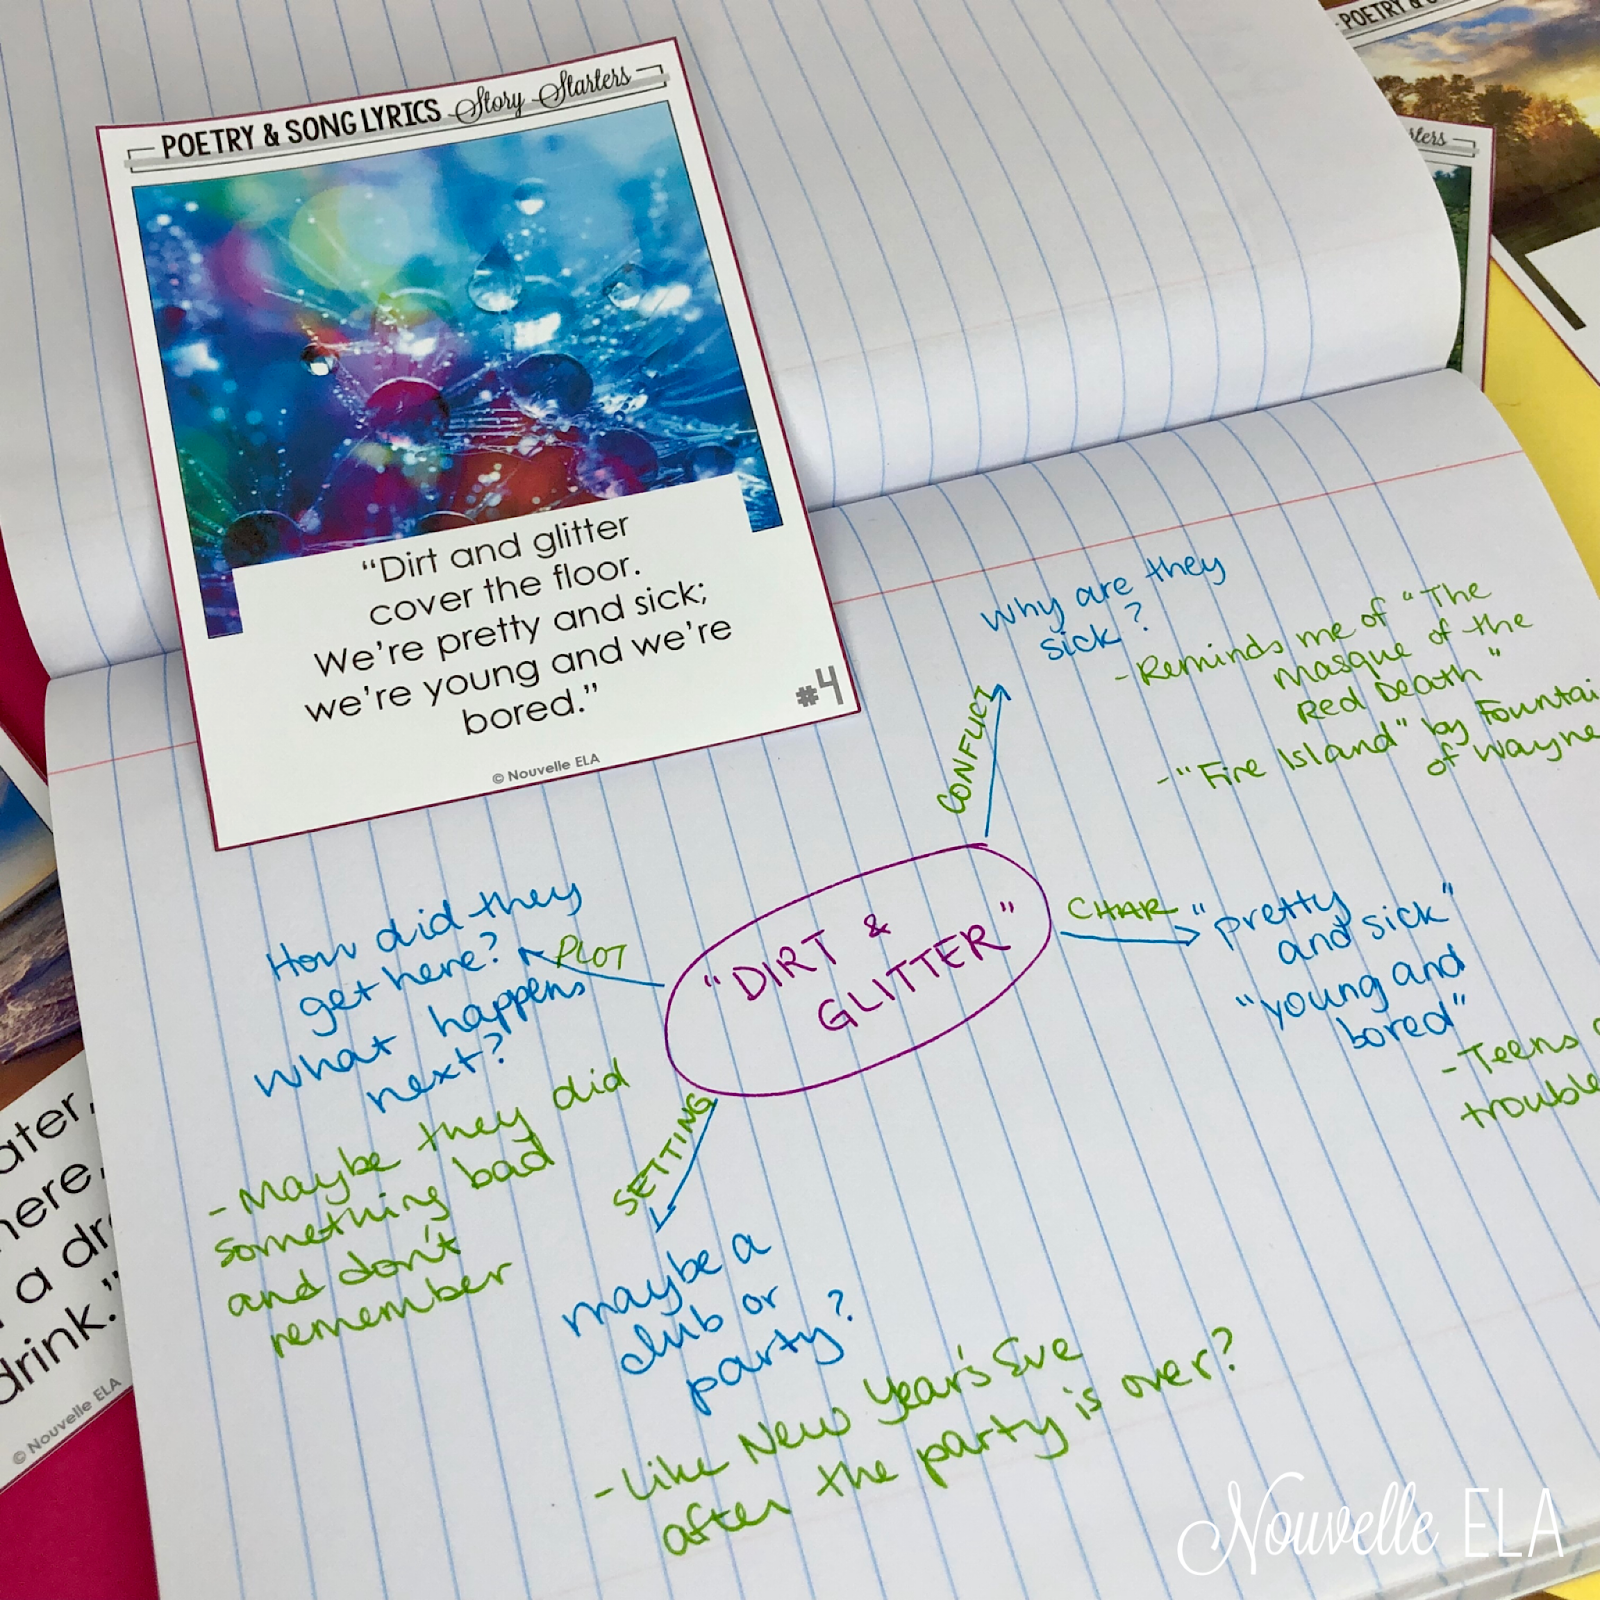 POETRY & SONG LYRICS Story Starters
"Dirt and glitter
cover the floor.
We're pretty and sick;
we're young and we're
bored."
#4
© Nouvelle ELA
POETRY &
rters
Why are they
sick?
- Reminds me of "The
Masque of the
Red Death"
- "Fire Island" by Fountai
of Wayne
CONFLICT
"DIRT &
GLITTER"
CHAR
"pretty
and sick"
"young and
bored"
- Teens
trouble
PLOT
How did they
get here?
What happens
next?
- Maybe they did
something bad
and don't
remember
SETTING
maybe a
club or
party?
- Like New Year's Eve
after the party is over?
ater,
here,
a dr
drink."
© Nouvelle ELA
Nouvelle ELA